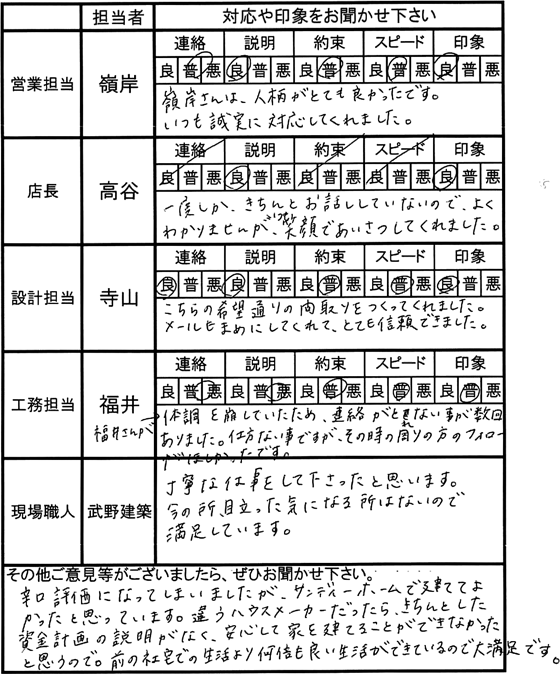 担当者 対応や印象をお聞かせ下さい
営業担当 嶺岸
連絡 説明 約束 スピード 印象
良 普 悪 良 普 悪 良 普 悪 良 普 悪 良 普 悪
嶺岸さんは、人柄がとても良かったです。
いつも誠実に対応してくれました。
店長 高谷
連絡 説明 約束 スピード 印象
良 普 悪 良 普 悪 良 普 悪 良 普 悪 良 普 悪
一度しか、きちんとお話ししていないので、よく
わかりませんが、いつも笑顔であいさつしてくれました。
設計担当 寺山
連絡 説明 約束 スピード 印象
良 普 悪 良 普 悪 良 普 悪 良 普 悪 良 普 悪
こちらの希望通りの間取りをつくってくれました。
メールもまめにしてくれて、とても信頼できました。
工務担当 福井
連絡 説明 約束 スピード 印象
良 普 悪 良 普 悪 良 普 悪 良 普 悪 良 普 悪
福井さんが→体調を崩していたため、連絡がとれない事が数回
ありました。仕方ない事ですが、その時の周りの方のフォロー
がほしかったです。
現場職人 武野建築
丁寧な仕事をして下さったと思います。
今の所、目立った気になる所はないので
満足しています。
その他ご意見等がございましたら、ぜひお聞かせ下さい。
辛口評価になってしまいましたが、サンディーホームで建ててよ
かったと思っています。違うハウスメーカーだったら、きちんとした
資金計画の説明がなく、安心して家を建てることができなかった
と思うので。前の社宅での生活より何倍も良い生活ができているので大満足です。